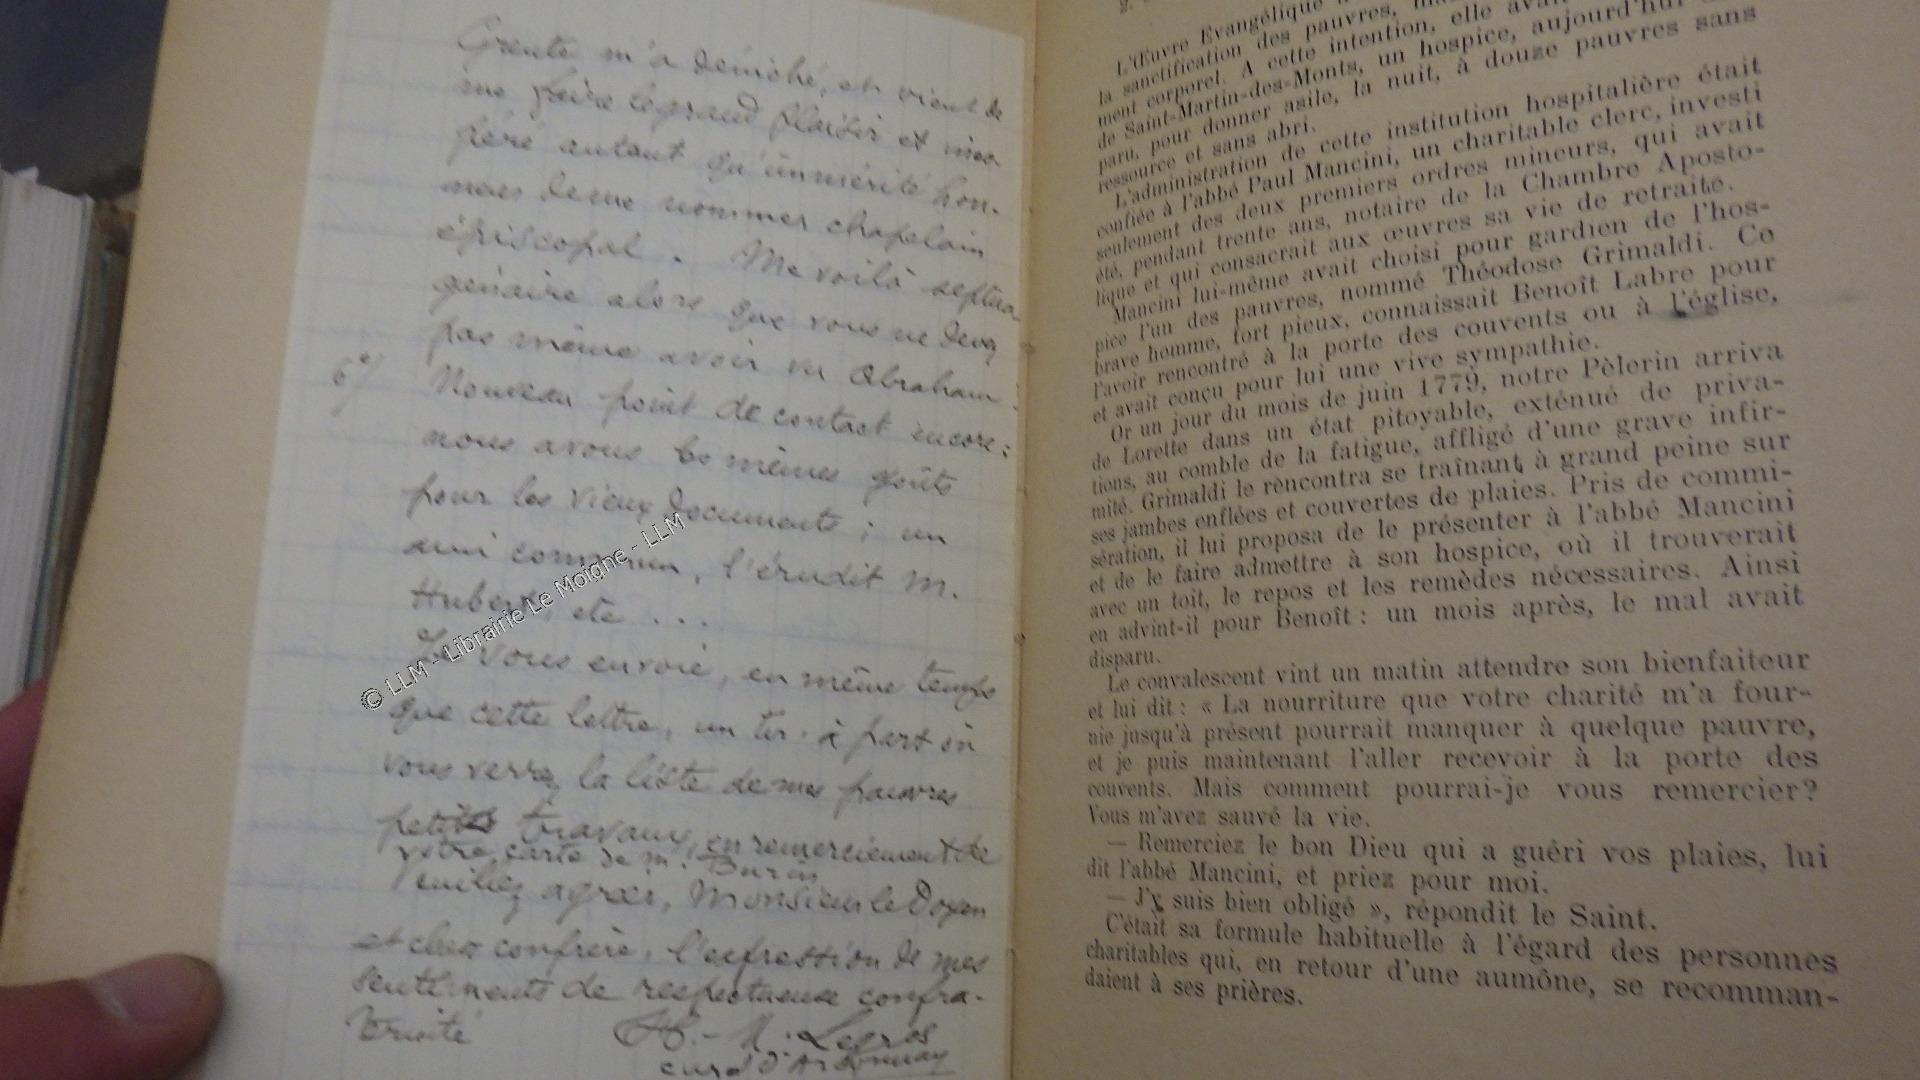 Grente m'a déniché, et vient de
me faire le grand plaisir et ines-
péré autant qu'immérité hon-
neur de me nommer chapelain
épiscopal. Me voilà septua-
génaire alors que vous ne devez
pas même avoir vu Abraham :
6°/ Nouveau point de contact encore :
nous avons les mêmes goûts
pour les vieux documents ; un
ami commun, l'érudit M.
Hubert, etc ...
Je vous envoie, en même temps
que cette lettre, un tir. à part où
vous verrez la liste de mes pauvres
petits travaux, en remerciement de
votre carte de M.
Veuillez agréer, Monsieur le Doyen
et cher confrère, l'expression de mes
sentiments de respectueuse confra-
ternité
Legros
curé d'
© LLM - Librairie Le Moigne - LLM
L'Œuvre Evangélique
la sanctification des pauvres,
ment corporel. A cette intention, elle avait
de Saint-Martin-des-Monts, un hospice, aujourd'hui
paru, pour donner asile, la nuit, à douze pauvres sans
ressource et sans abri.
L'administration de cette institution hospitalière était
confiée à l'abbé Paul Mancini, un charitable clerc, investi
seulement des deux premiers ordres mineurs, qui avait
été, pendant trente ans, notaire de la Chambre Aposto-
lique et qui consacrait aux œuvres sa vie de retraite.
Mancini lui-même avait choisi pour gardien de l'hos-
pice l'un des pauvres, nommé Théodose Grimaldi. Ce
brave homme, fort pieux, connaissait Benoît Labre pour
l'avoir rencontré à la porte des couvents ou à l'église,
et avait conçu pour lui une vive sympathie.
Or un jour du mois de juin 1779, notre Pèlerin arriva
de Lorette dans un état pitoyable, exténué de priva-
tions, au comble de la fatigue, affligé d'une grave infir-
mité. Grimaldi le rencontra se traînant à grand peine sur
ses jambes enflées et couvertes de plaies. Pris de commi-
sération, il lui proposa de le présenter à l'abbé Mancini
et de le faire admettre à son hospice, où il trouverait
avec un toit, le repos et les remèdes nécessaires. Ainsi
en advint-il pour Benoît : un mois après, le mal avait
disparu.
Le convalescent vint un matin attendre son bienfaiteur
et lui dit : « La nourriture que votre charité m'a four-
nie jusqu'à présent pourrait manquer à quelque pauvre,
et je puis maintenant l'aller recevoir à la porte des
couvents. Mais comment pourrai-je vous remercier ?
Vous m'avez sauvé la vie.
— Remerciez le bon Dieu qui a guéri vos plaies, lui
dit l'abbé Mancini, et priez pour moi.
— J'y suis bien obligé », répondit le Saint.
C'était sa formule habituelle à l'égard des personnes
charitables qui, en retour d'une aumône, se recomman-
daient à ses prières.